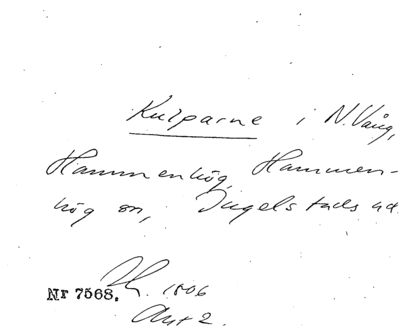 Kulparne i N. Vång,
Hammenhög, Hammen-
hög sn, Ingelstads hd.
Nr 7568. 1806
Akt 2.